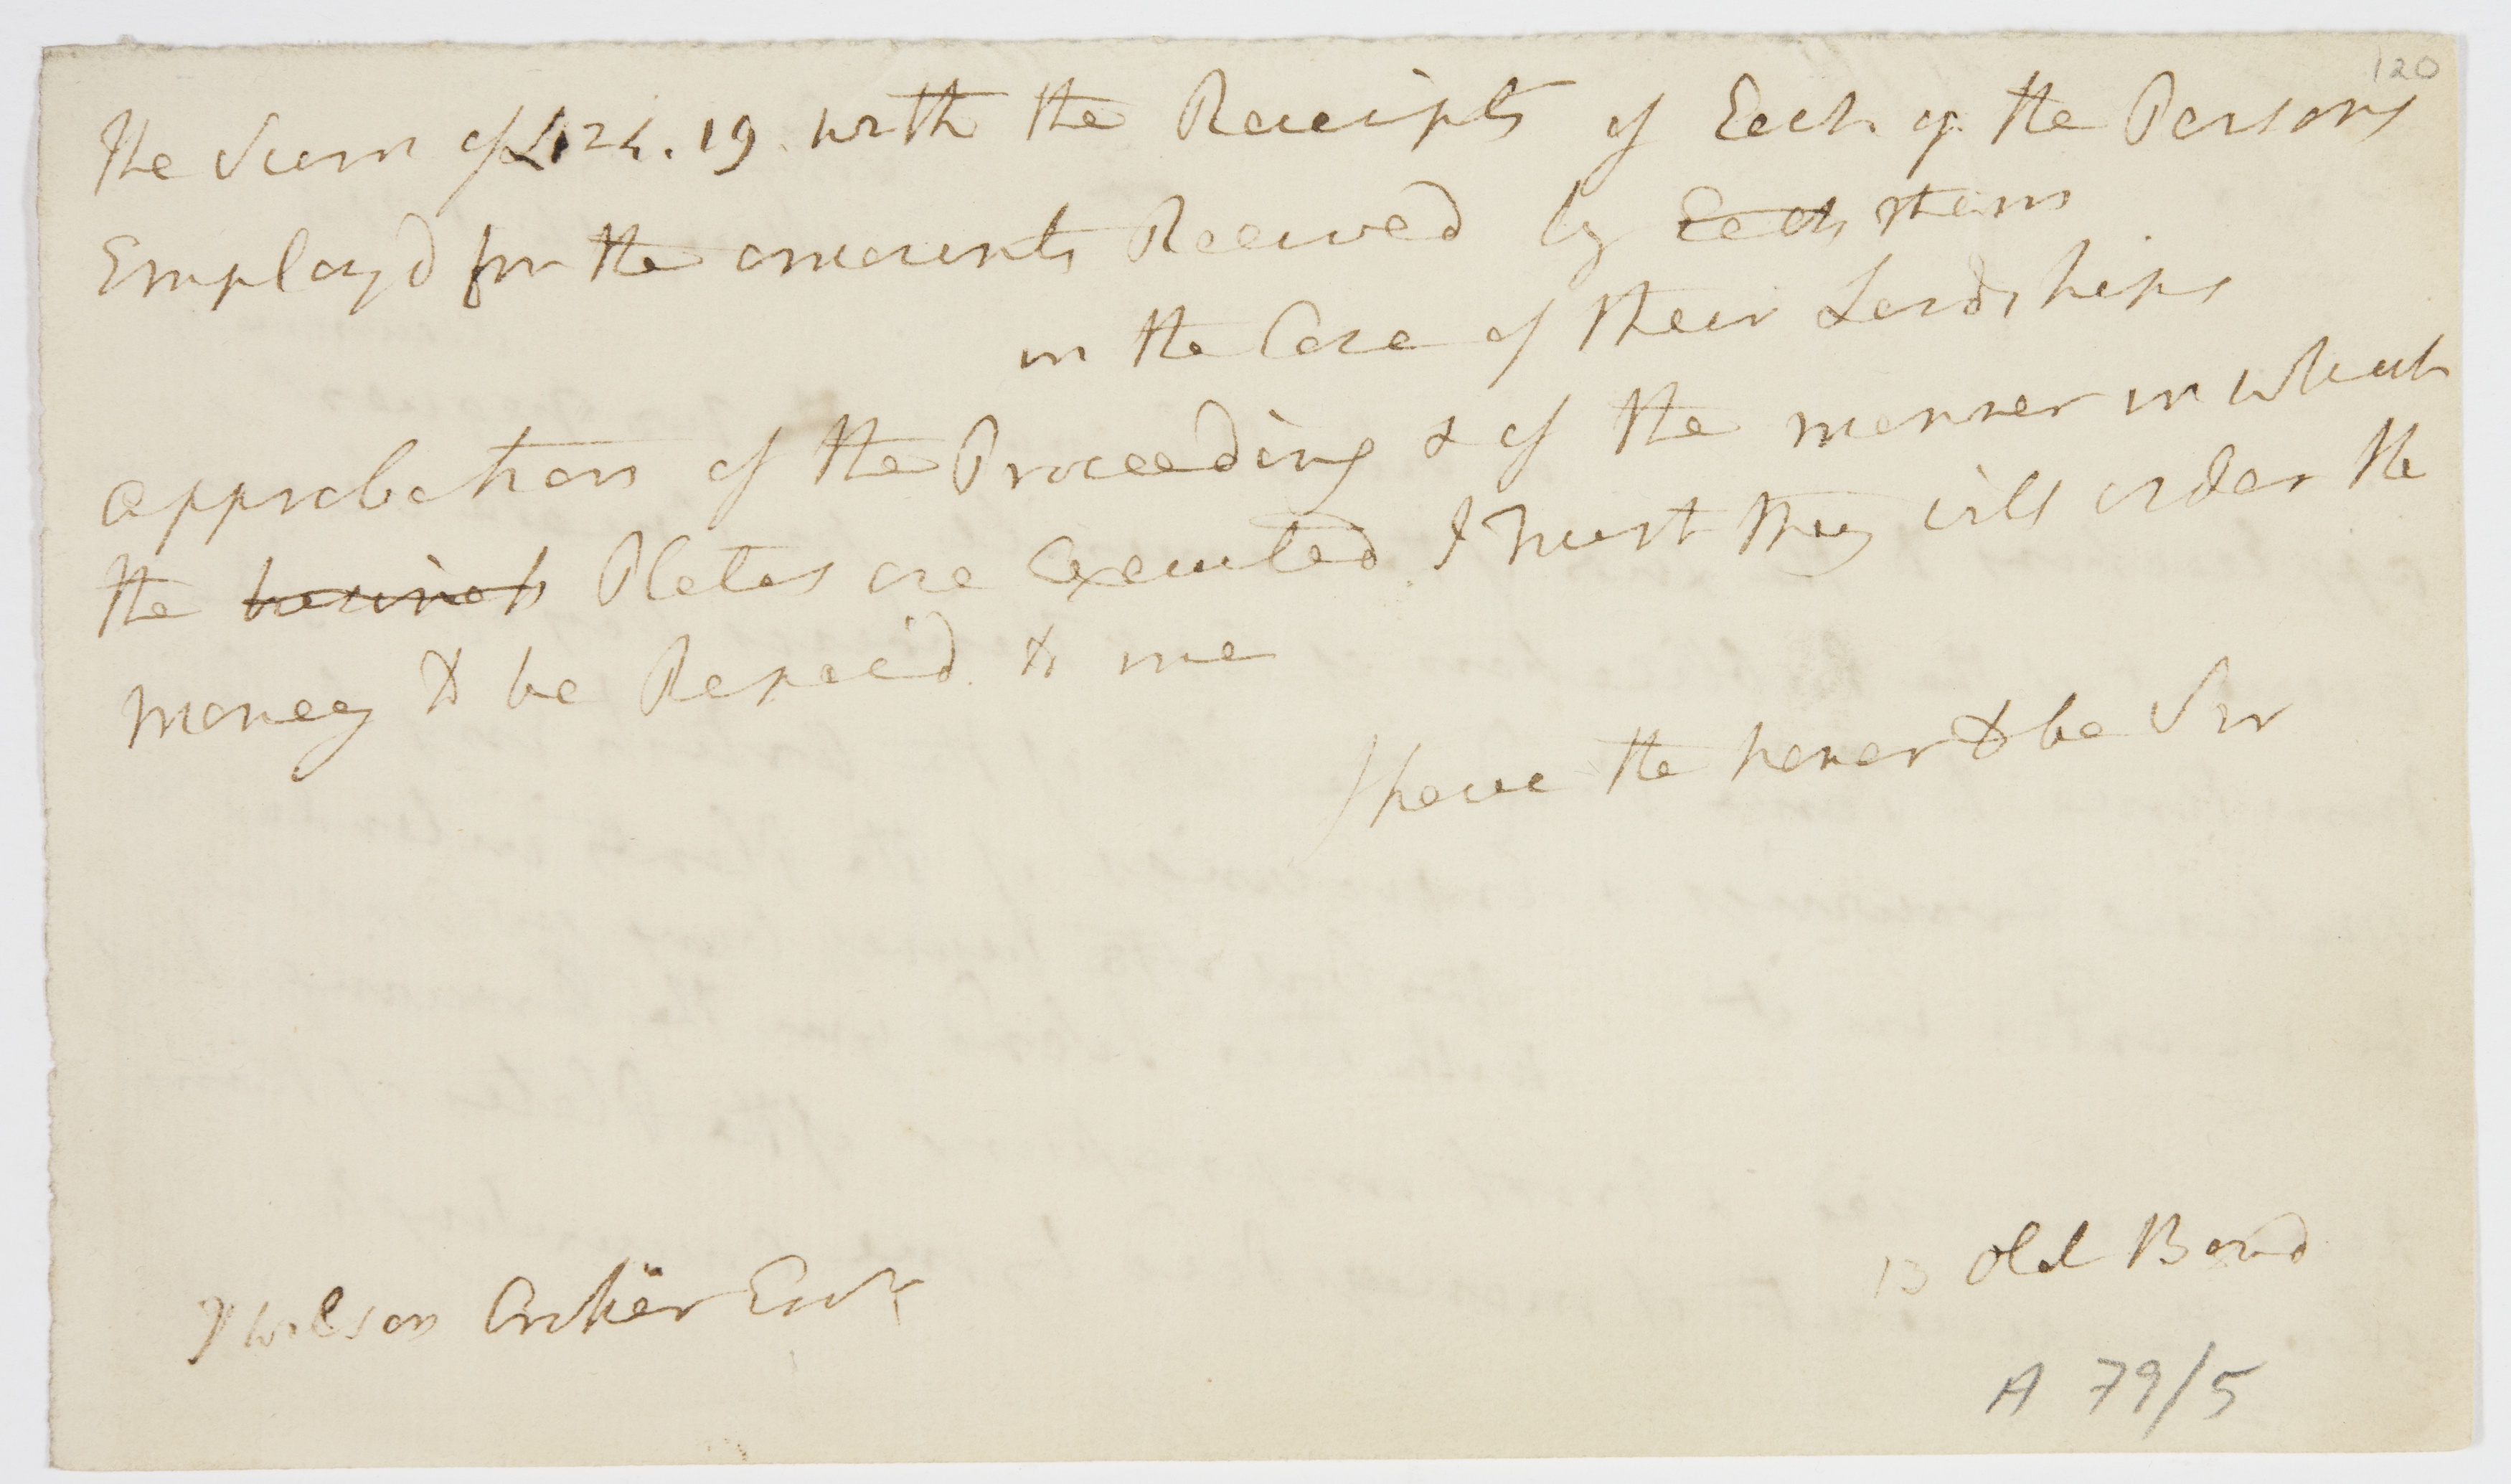 120
the Sum of £124.19. with the Receipts of Each of the Persons
Employd for the amounts Received by Each them
in the Case of their Lordships
approbation of the Proceeding & of the manner in which
the business Plates are Executed I trust they will order the
money to be Repaid to me
I have the honor to be Sir
13 Old Bond
Wilson Croker Esqr
A 79/5